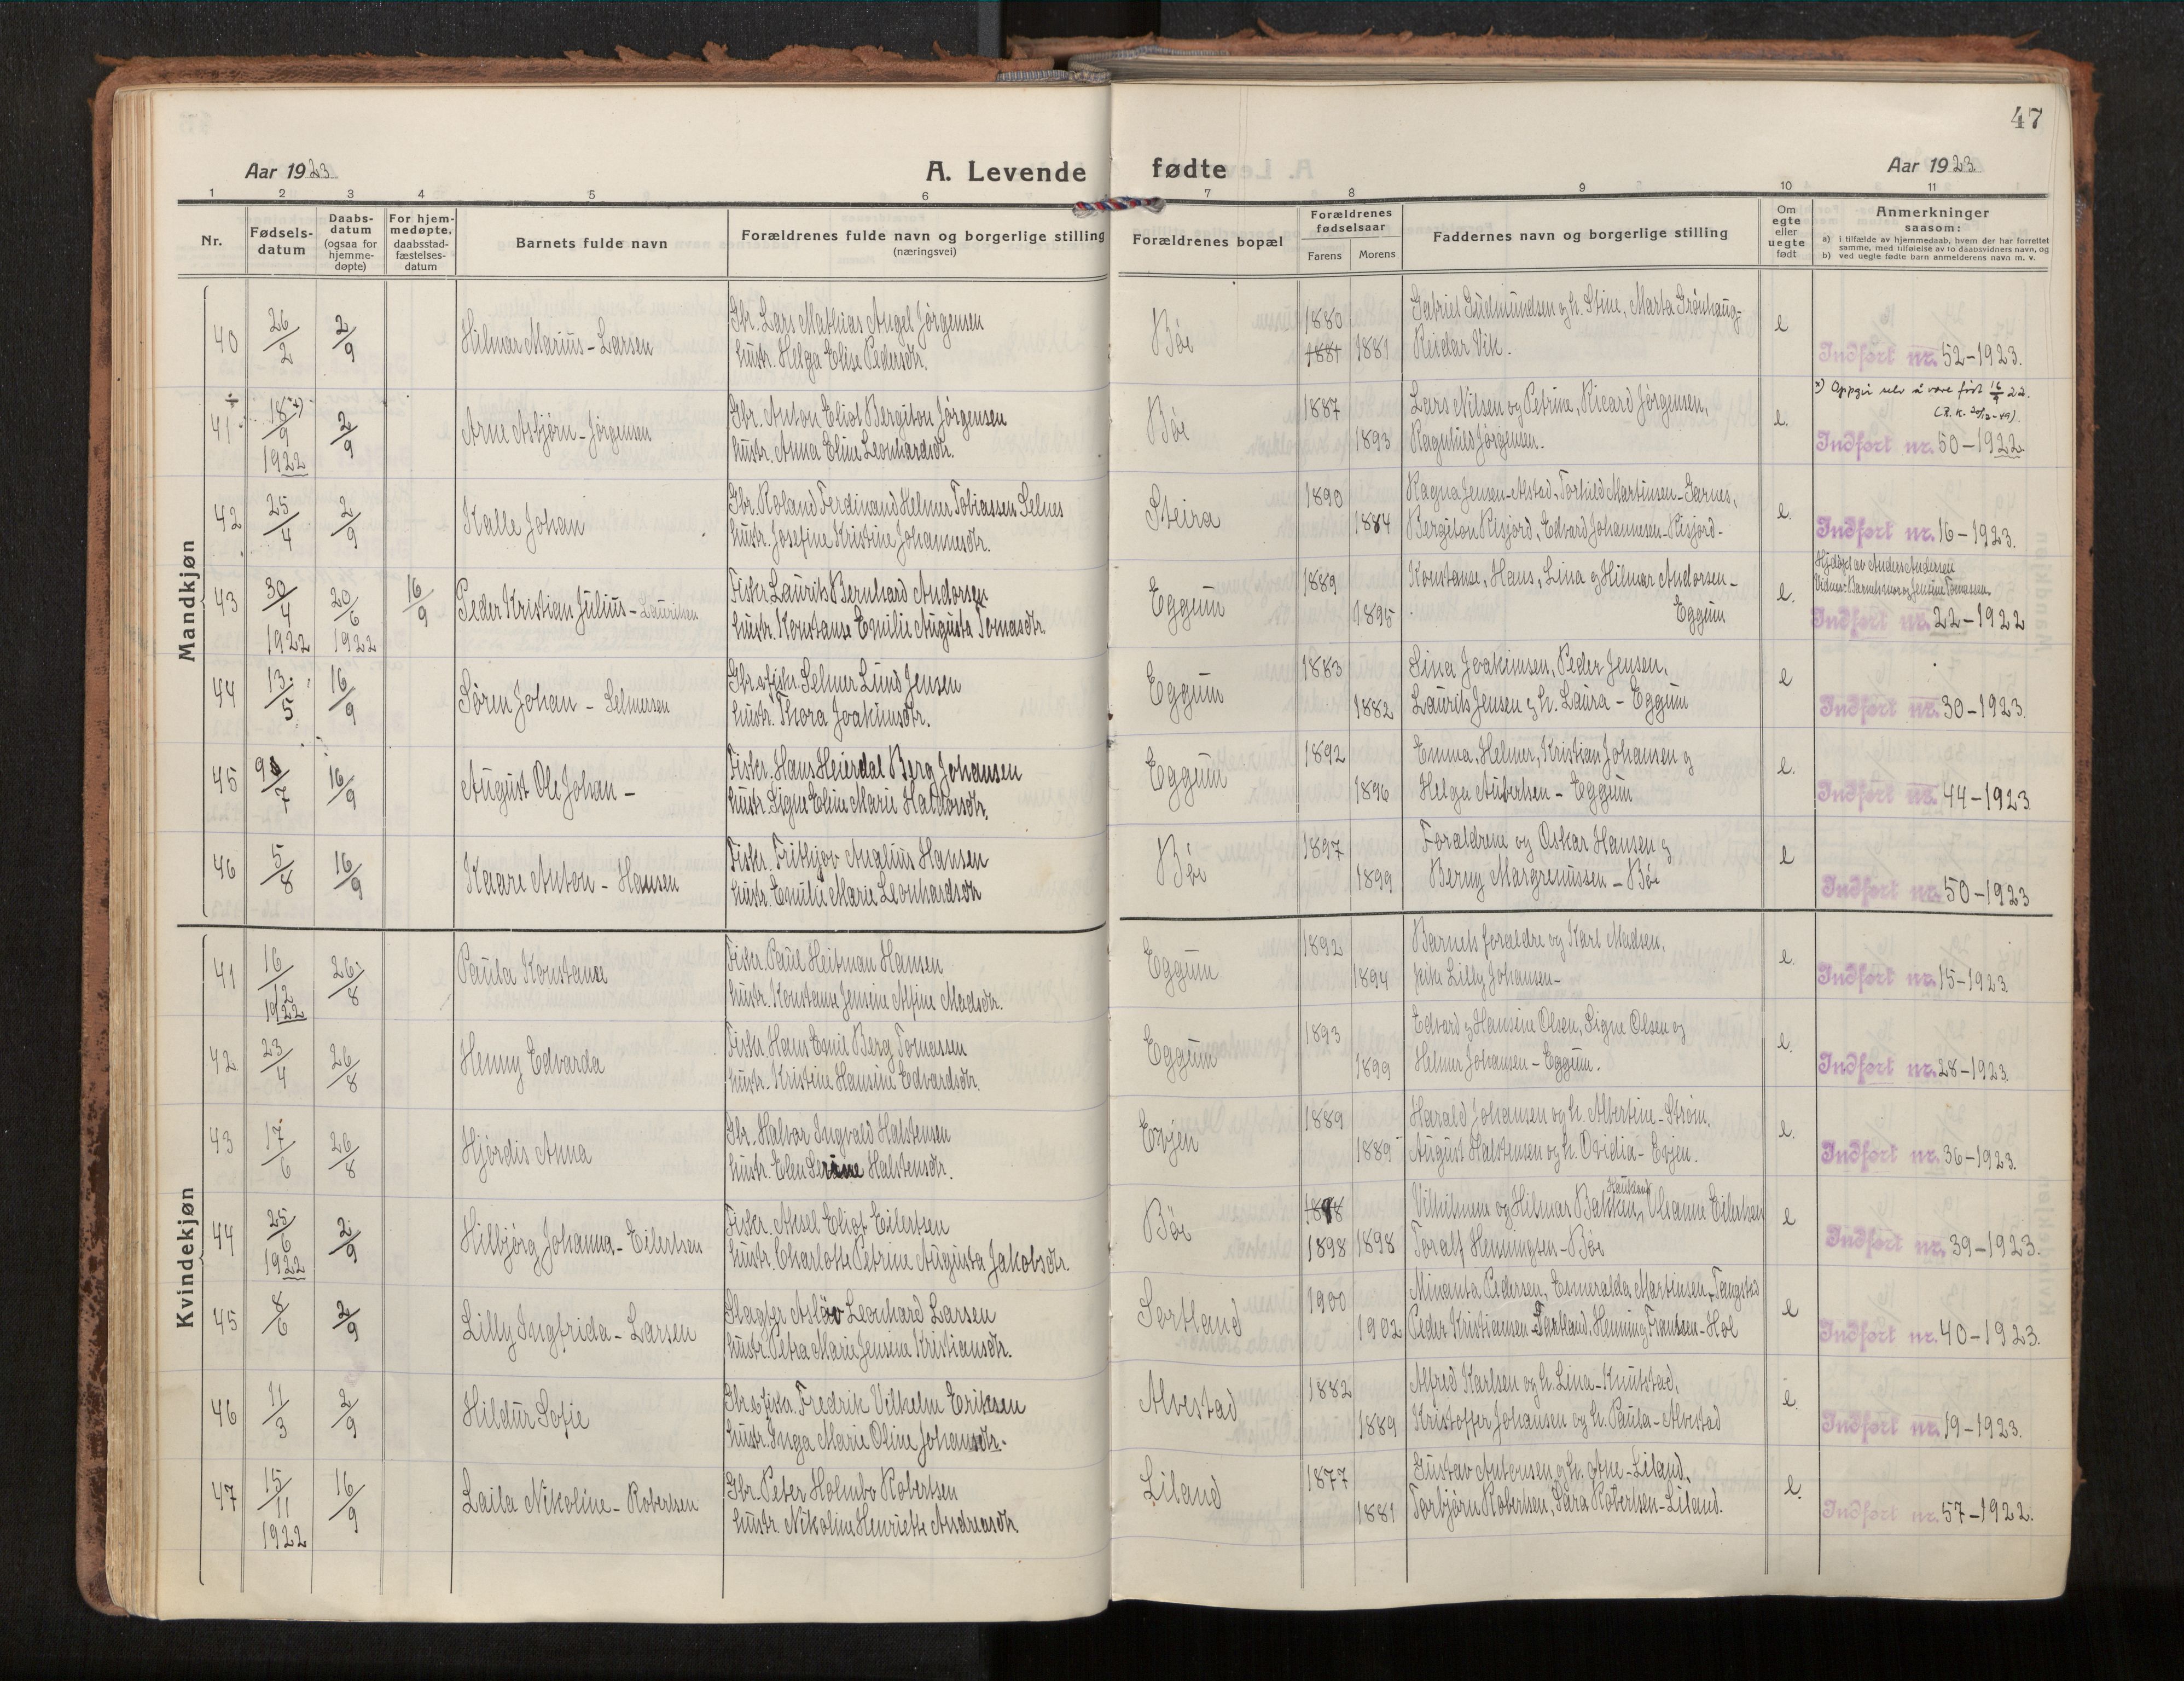 47
Aar 1923
A. Levende fødte
Aar 1923
1 2 3 4 5 6 7 8 9 10 11
Nr.
Fødsels-
datum
Daabs-
datum
(ogsaa for
hjemme-
døpte)
For hjem-
medøpte,
daabsstad-
fæstelses-
datum
Barnets fulde navn
Forældrenes fulde navn og borgerlige stilling
(næringsvei)
Forældrenes bopæl
Forældrenes
fødselsaar
Farens Morens
Faddernes navn og borgerlige stilling
Om
egte
eller
uegte
født
Anmerkninger
saasom:
a) i tilfælde av hjemmedaab, hvem der har forrettet
samme, med tilføielse av to daabsvidners navn, og
b) ved uegte fødte barn anmelderens navn m. v.
Mandkjøn
40 26/2 2/9 Hilmar Marius - Larsen
Gbr. Lars Mathias Angel Jørgensen
hustr. Helga Elise Pedersdtr.
Bøe 1880 1881 1881
Gabriel Gudmundsen og h. Stine, Marta Grønhaug-
Reidar Vik.
e
Indført nr. 52-1923.
÷
41 18/9 x) 1922 2/9 Arne Asbjørn - Jørgensen
Gbr. Anton Eliot Bergiton Jørgensen
hustr. Anna Eline Leonhardsdtr.
Bøe 1887 1893
Lars Nilsen og Petrine, Ricard Jørgensen,
Ragnhild Jørgensen.
e.
x) Oppgir selv å være født 16/9 22.
(R.K. 20/12-49).
Indført nr. 50-1922.
42 25/4 2/9 Kalle Johan
Gbr. Roland Ferdinand Helmer Tobiassen Selnes
hustr. Josefine Kristine Johannesdtr.
Steira 1890 1884
Ragna Jensen-Alstad, Torhild Martinsen-Jarnes,
Bergiton Risjord, Edvard Johannesen-Risjord-
e.
Indført nr. 16-1923.
43 30/4 1922 20/6 1922 16/9 Peder Kristian Julius - Lauritsen
Fisker Laurits Bernhard Andorsen
hustr. Konstanse Emilie Augusta Tomasdtr.
Eggum 1889 1895
Konstanse, Hans, Lina og Hilmar Andorsen-
Eggum
e.
Hjdøpt av Anders Andersen
Vidner: Barnets mor og Jensine Tomassen.
Indført nr. 22-1922
44 13/5 16/9 Søren Johan - Selmersen
Gbr & fiskr. Selmer Lund Jensen
hustr. Thora Joakimsdtr.
Eggum 1883 1882
Lina Joakimsen, Peder Jensen,
Laurits Jensen og h. Laura - Eggum
e
Indført nr. 30-1923.
45 9/7 16/9 August Ole Johan -
Fiskr. Hans Heierdal Berg Johansen
hustr. Signe Eline Marie Haldorsdtr.
Eggum 1892 1896
Emma, Helmer, Kristian Johansen og
Helga Aubertsen - Eggum
e.
Indført nr. 44-1923
46 5/8 16/9 Kaare Anton - Hansen
Fiskr. Frithjov Analius Hansen
hustr. Emilie Marie Leonhardsdtr
Bøe 1897 1899
Forældrene og Oskar Hansen og
Berny Margrenussen - Bøe
e
Indført nr. 50-1923
Kvindekjøn
41 16/12 1922 26/8 Paula Konstanse
Fiskr. Paul Heitman Hansen
hustr. Konstanse Jensine Alfine Madsdtr.
Eggum 1892 1894
Barnets forældre og Karl Madsen,
pike Lilly Johansen-
e.
Indført nr. 15-1923
42 23/4 26/8 Henny Edvarda
Fiskr. Hans Emil Berg Tomassen
hustr. Kristine Hansine Edvardsdtr.
Eggum 1893 1899
Edvard og Hansine Olsen, Signe Olsen og
Helmer Johansen - Eggum.
e.
Indført nr. 28-1923.
43 17/6 26/8 Hjørdis Anna
Gbr. Halvar Ingvald Halstensen
hustr. Elen Serine Halstensdtr.
Evjen 1889 1889
Harald Johansen og h. Albertine - Strøm.
August Halstensen og h. Ovidia - Evjen.
e.
Indført nr. 36-1923.
44 25/6 1922 2/9 Hilbjørg Johanna - Eilertsen
Fiskr. Aksel Eliot Eilertsen
hustr. Charlotte Petrine Augusta Jakobsdtr.
Bøe 1898 1898
Vilhelmine og Hilmar Bakken, Haukland, Olianne Eilertsen
Toralf Henningsen - Bøe
e
Indført nr. 39-1923.
45 8/6 2/9 Lilly Ingfrida - Larsen
Slagter Aslav Leonhard Larsen
hustr. Petra Marie Jensine Kristiansdtr.
Sortland 1900 1902
Minanta Pedersen, Esmeralda Martinsen, Tangstad
Peder Kristiansen - Fartland, Henning Frantsen - Hol
e
Indført nr. 40-1923.
46 11/3 2/9 Hildur Sofie
Gbr & fiskr. Fredrik Vilhelm Eriksen
hustr. Inga Marie Oline Johansdtr.
Alvestad 1882 1889
Alfred Karlsen og h. Lina - Knutstad,
Kristoffer Johansen og h. Paula - Alvestad
e.
Indført nr. 19-1923.
47 15/11 1922 16/9 Laila Nikoline - Robertsen
Gbr. Peter Holmbo Robertsen
hustr. Nikoline Henriette Andreasdtr.
Liland 1877 1881
Gustav Antonsen og h. Ane - Liland,
Torbjørn Robertsen, Sara Robertsen - Liland.
e.
Indført nr. 57-1922.